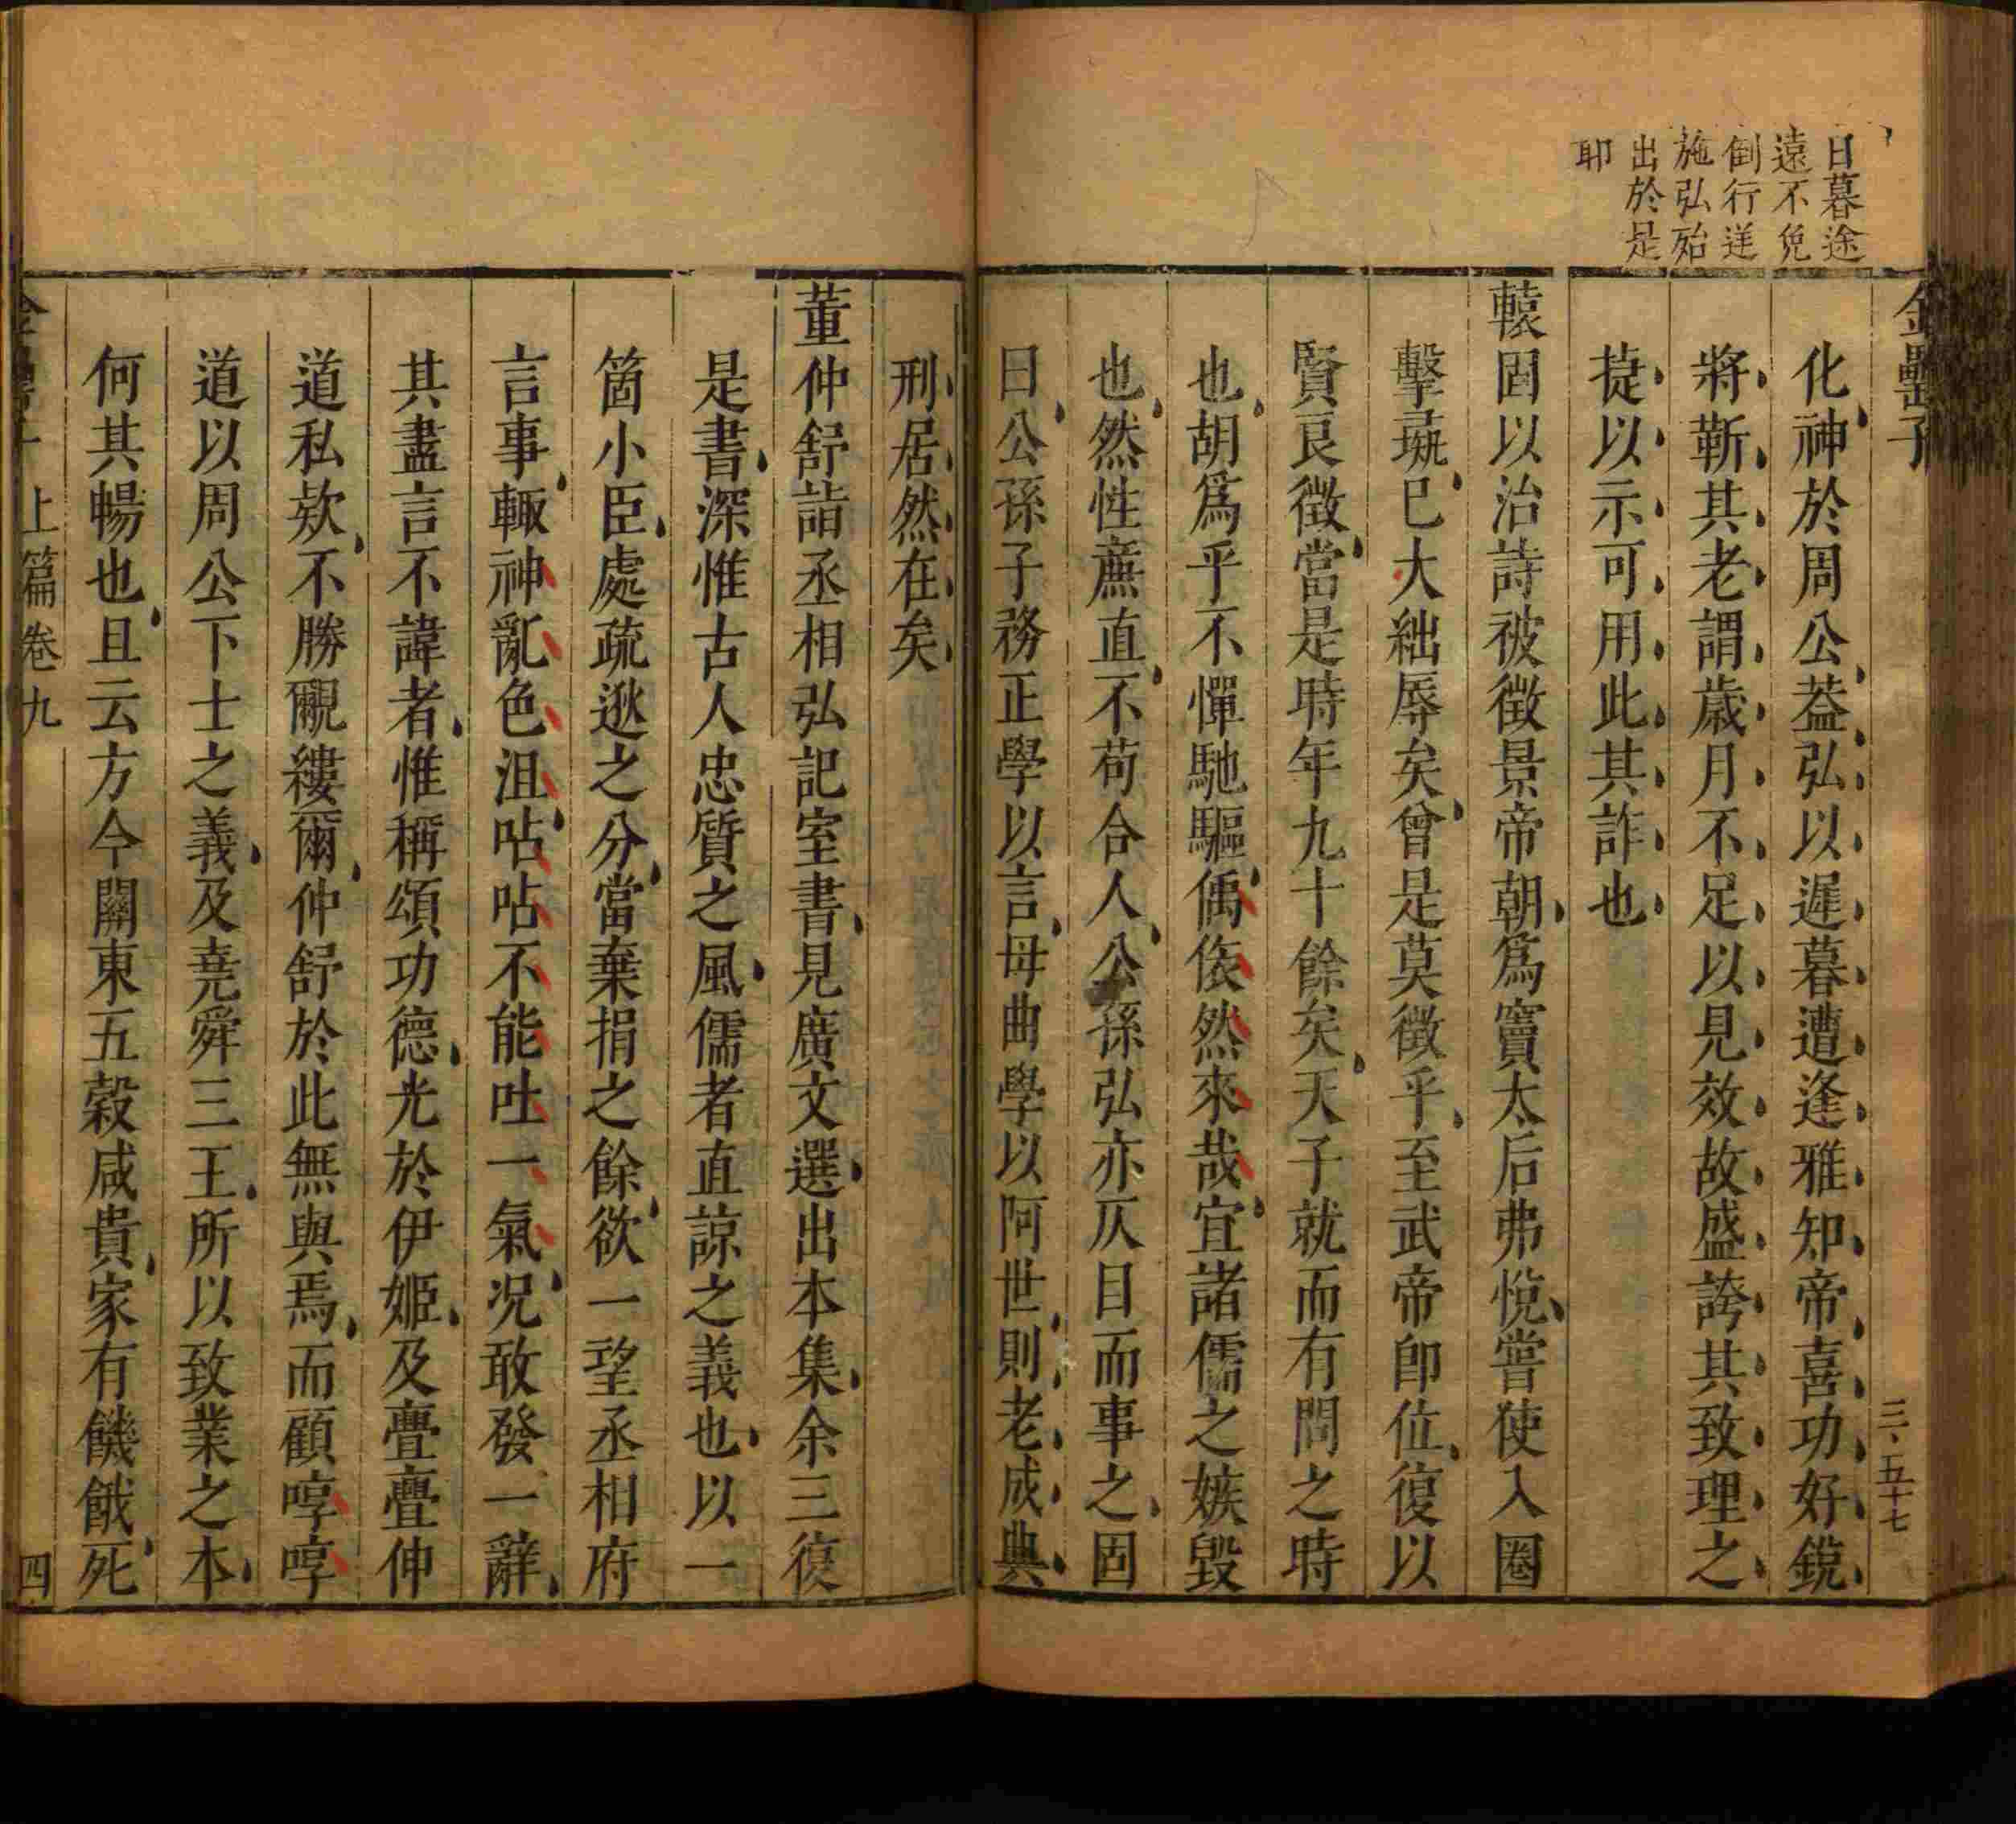 日暮途
遠不免
倒行逆
施弘殆
出於是
耶
金罍子
三、五十七
化神於周公葢弘以遲暮遭逢雅知帝喜功好銳
將蘄其老謂歲月不足以見效故盛誇其致理之
捷以示可用此其詐也
轅固以治詩被徵景帝朝爲竇太后弗悅嘗使入圈
擊彘已大絀辱矣曾是莫徵乎至武帝卽位復以
賢良徵當是時年九十餘矣天子就而有問之時
也胡爲乎不憚馳驅偊侅然來哉宜諸儒之嫉毀
也然性㢘直不苟合人公孫弘亦仄目而事之固
曰公孫子務正學以言毋曲學以阿世則老成典
刑居然在矣
董仲舒詣丞相弘記室書見廣文選出本集余三復
是書深惟古人忠質之風儒者直諒之義也以一
箇小臣處疏逖之分當棄捐之餘欲一望丞相府
言事輙神亂色沮呫呫不能吐一氣況敢發一辭
其盡言不諱者惟稱頌功德光於伊姬及亹亹伸
道私欵不勝覼縷爾仲舒於此無與焉而顧啍啍
道以周公下士之義及堯舜三王所以致業之本
何其暢也且云方今關東五穀咸貴家有饑餓死
上篇卷九
四